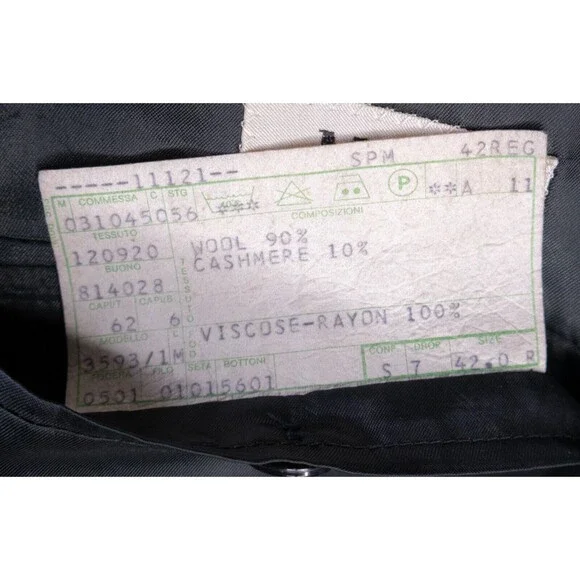 SPM 42REG
-----11121--
M COMMESSA C STG
031045056 *** P **A 11
TESSUTO COMPOSIZIONI
120920 WOOL 90%
BUONO CASHMERE 10%
814028
CAPUT CAPUB
62 6
MODELLO VISCOSE-RAYON 100%
3593/1M
FILO SETA BOTTONI CONF DROP SIZE
0501 01015601 S 7 42.0 R